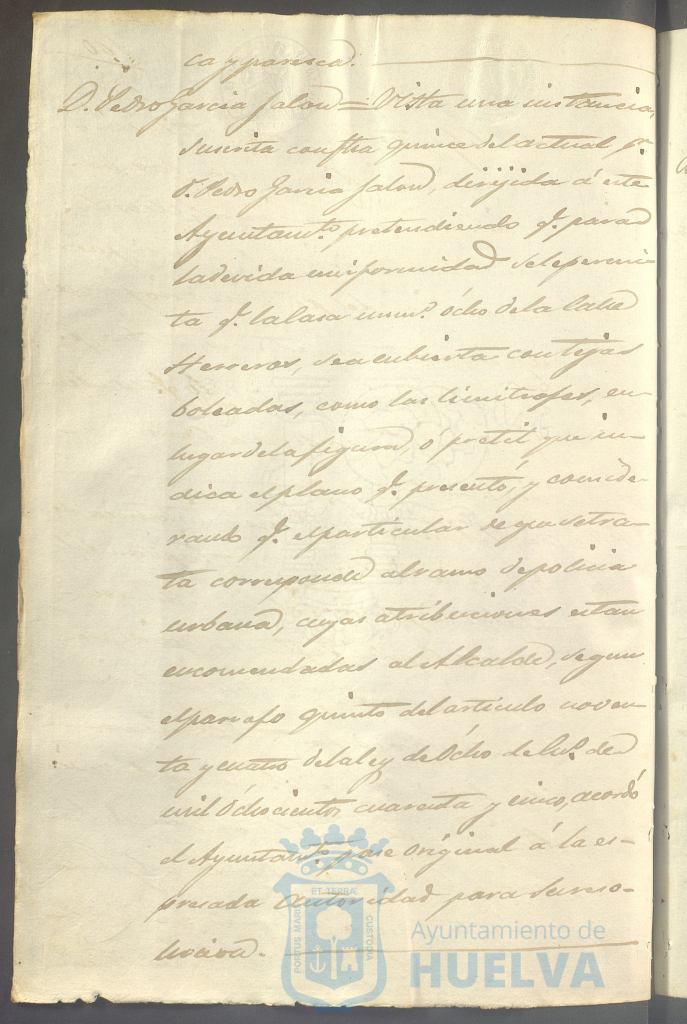 ca y paresca.
D. Pedro Garcia Jalon = Vista una instancia,
suscrita con fha quince del actual pr.
D. Pedro Garcia Jalon, dirijida á este
Ayuntamto. pretendiendo qe. para
la devida uniformidad se le permi
ta qe. la casa numo. ócho de la Calle
Herreros, sea cubierta con tejas
boleadas, como las limitrofes, en
lugar de la figura, ó pretil que in-
dica el plano qe. presentó, y conside-
rando qe. el particular de que se tra-
ta corresponde al ramo de policia
urbana, cuyas atribuciones estan
encomendadas al Alcalde, segun
el parrafo quinto del articulo noven-
ta y cuatro de la ley de Ócho de Eno. de
mil Ochocientos cuarenta y cinco, acordó
el Ayuntamto. pase original á la es-
presada autoridad para su reso-
lucion.
PORTUS MARIS ET TERRAE CUSTODIA
Ayuntamiento de
HUELVA